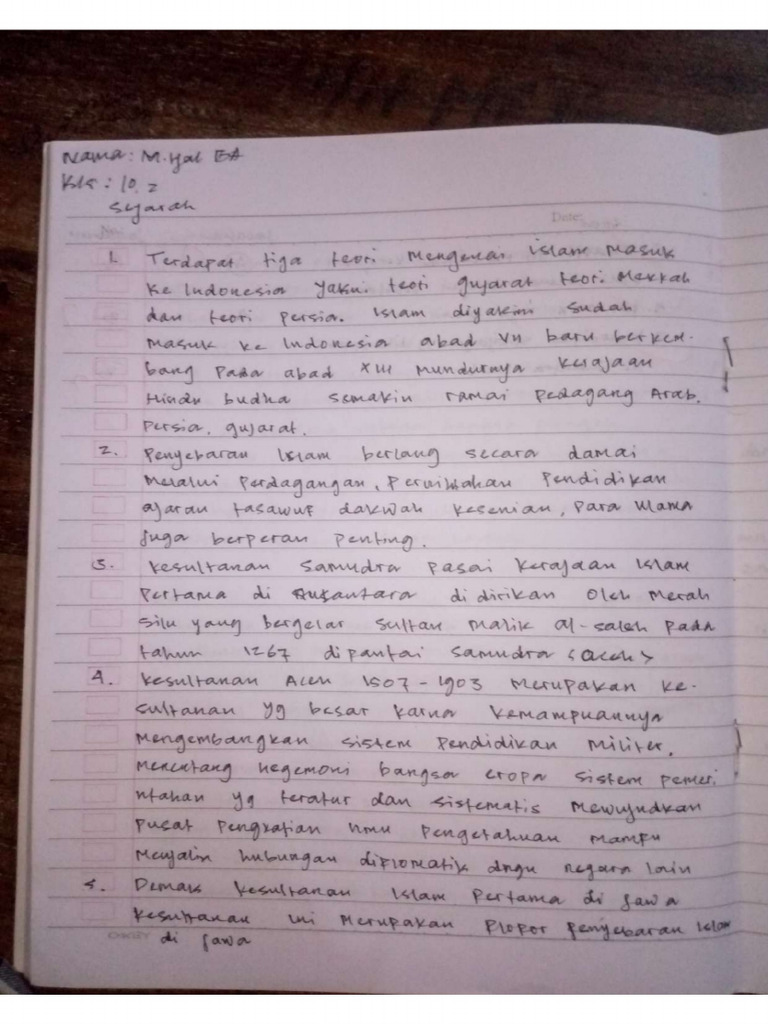 Nama : M. Hal EA
Kls : 10. 2
Sejarah
No. Date:
1. Terdapat tiga teori mengenai islam masuk
ke Indonesia yakni. teori gujarat teori. Mekkah
dan teori persia. Islam diyakini sudah
masuk ke Indonesia abad VII baru berkem-
bang pada abad XIII mundurnya kerajaan
Hindu budha semakin ramai pedagang Arab.
Persia. gujarat.
2. Penyebaran Islam berlang secara damai
melalui perdagangan, pernikahan pendidikan
ajaran tasawuf dakwah kesenian, para ulama
juga berperan penting.
3. kesultanan samudra pasai kerajaan islam
pertama di Nusantara didirikan oleh merah
silu yang bergelar sultan malik al-saleh pada
tahun 1267 dipantai samudra <aceh>
4. kesultanan Aceh 1507-1903 merupakan ke-
sultanan yg besar karna kemampuannya
mengembangkan sistem pendidikan militer,
menentang hegemoni bangsa eropa sistem pemeri
ntahan yg teratur dan sistematis mewujudkan
pusat pengkajian ilmu pengetahuan mampu
menjalin hubungan diplomatik dngn negara lain
5. Demak kesultanan islam pertama di jawa
kesultanan ini merupakan plopor penyebaran islam
di jawa